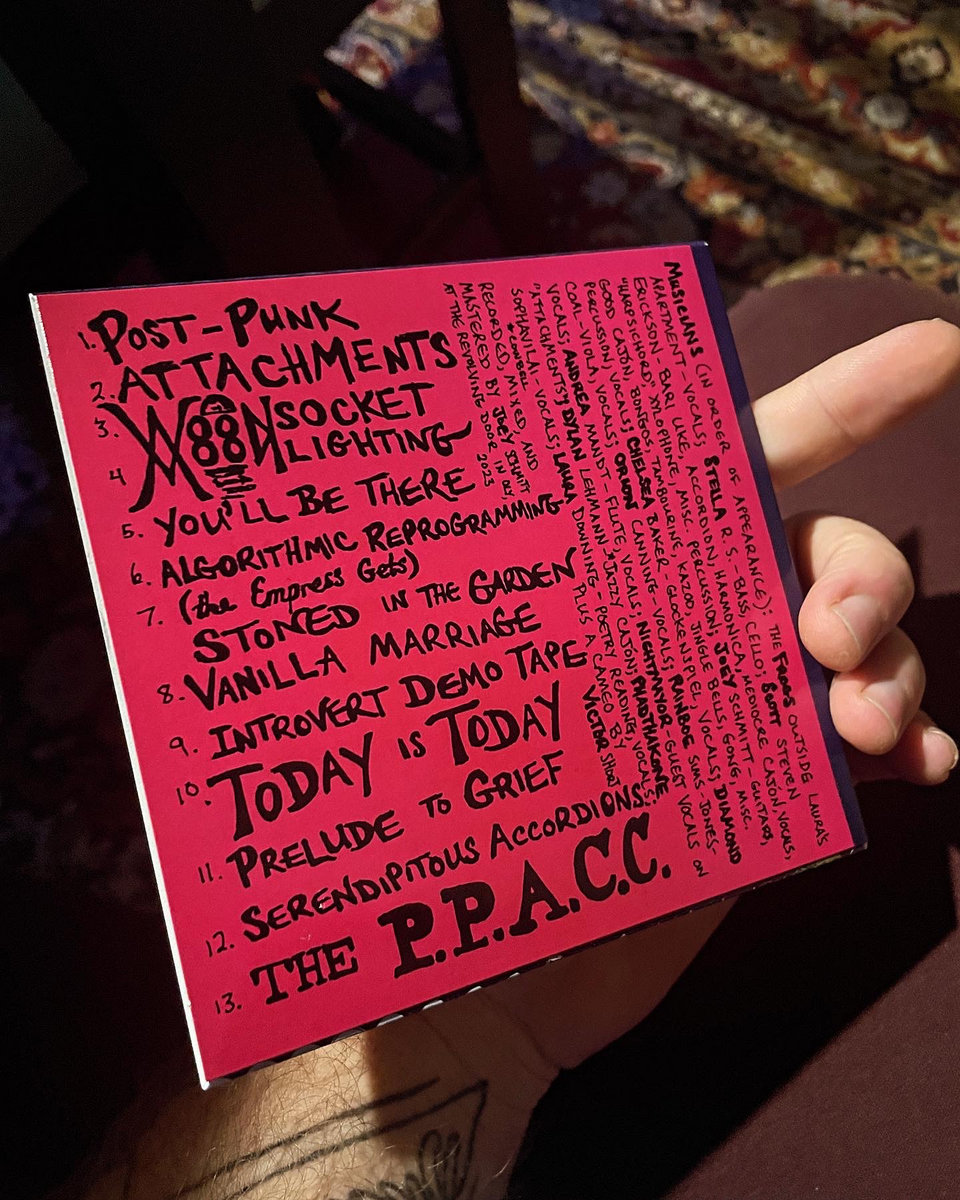 1. POST-PUNK
2. ATTACHMENTS
3. WOONSOCKET
4 MOONLIGHTING
5. YOU'LL BE THERE
6. ALGORITHMIC REPROGRAMMING
(the Empress Gets)
7. STONED IN THE GARDEN
8. VANILLA MARRIAGE
9. INTROVERT DEMO TAPE
10. TODAY IS TODAY
11. PRELUDE TO GRIEF
12. SERENDIPITOUS ACCORDIONS
13. THE P.P.A.C.C.
MUSICIANS (IN ORDER OF APPEARANCE): THE FROGS OUTSIDE LAURA'S
APARTMENT - VOCALS; STELLA R. S. - BASS, CELLO; SCOTT STEVEN
ERICKSON - BARI UKE, ACCORDION, HARMONICA, MEDIOCRE CAJÓN, VOCALS,
"HARPSICHORD," XYLOPHONE, MISC. PERCUSSION; JOEY SCHMITT - GUITARS,
GOOD CAJÓN, BONGOS, TAMBOURINE, KAZOO, JINGLE BELLS, GONG, MISC.
PERCUSSION, VOCALS; CHELSEA BAKER - GLOCKENSPIEL, VOCALS; DIAMOND
COAL - VIOLA, VOCALS; ORION CANNING - VOCALS; RAINBOE SIMS-JONES -
VOCALS; ANDREA MANDT - FLUTE, VOCALS; NIGHTMAYOR - GUEST VOCALS ON
"ATTACHMENTS"; DYLAN LEHMANN - *JAZZY CAJÓN; PHASTHAIKONE
SOPHAVILAI - VOCALS; LAURA DOWNING - POETRY READINGS, VOCALS;
*+COWBELL
PLUS A CAMEO BY VICTOR
RECORDED, MIXED, AND
MASTERED BY JOEY SCHMITT
AT THE REVOLVING DOOR IN OLY, 2023